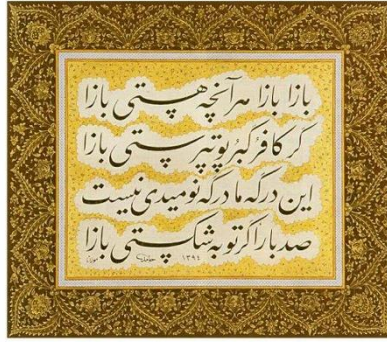 بازا بازا هر آنچه هستی بازا
گر کافر گبر و بت پرستی بازا
این درگه ما درگه نومیدی نیست
صد بار اگر توبه شکستی بازا
۱۳۹۴ مولانا